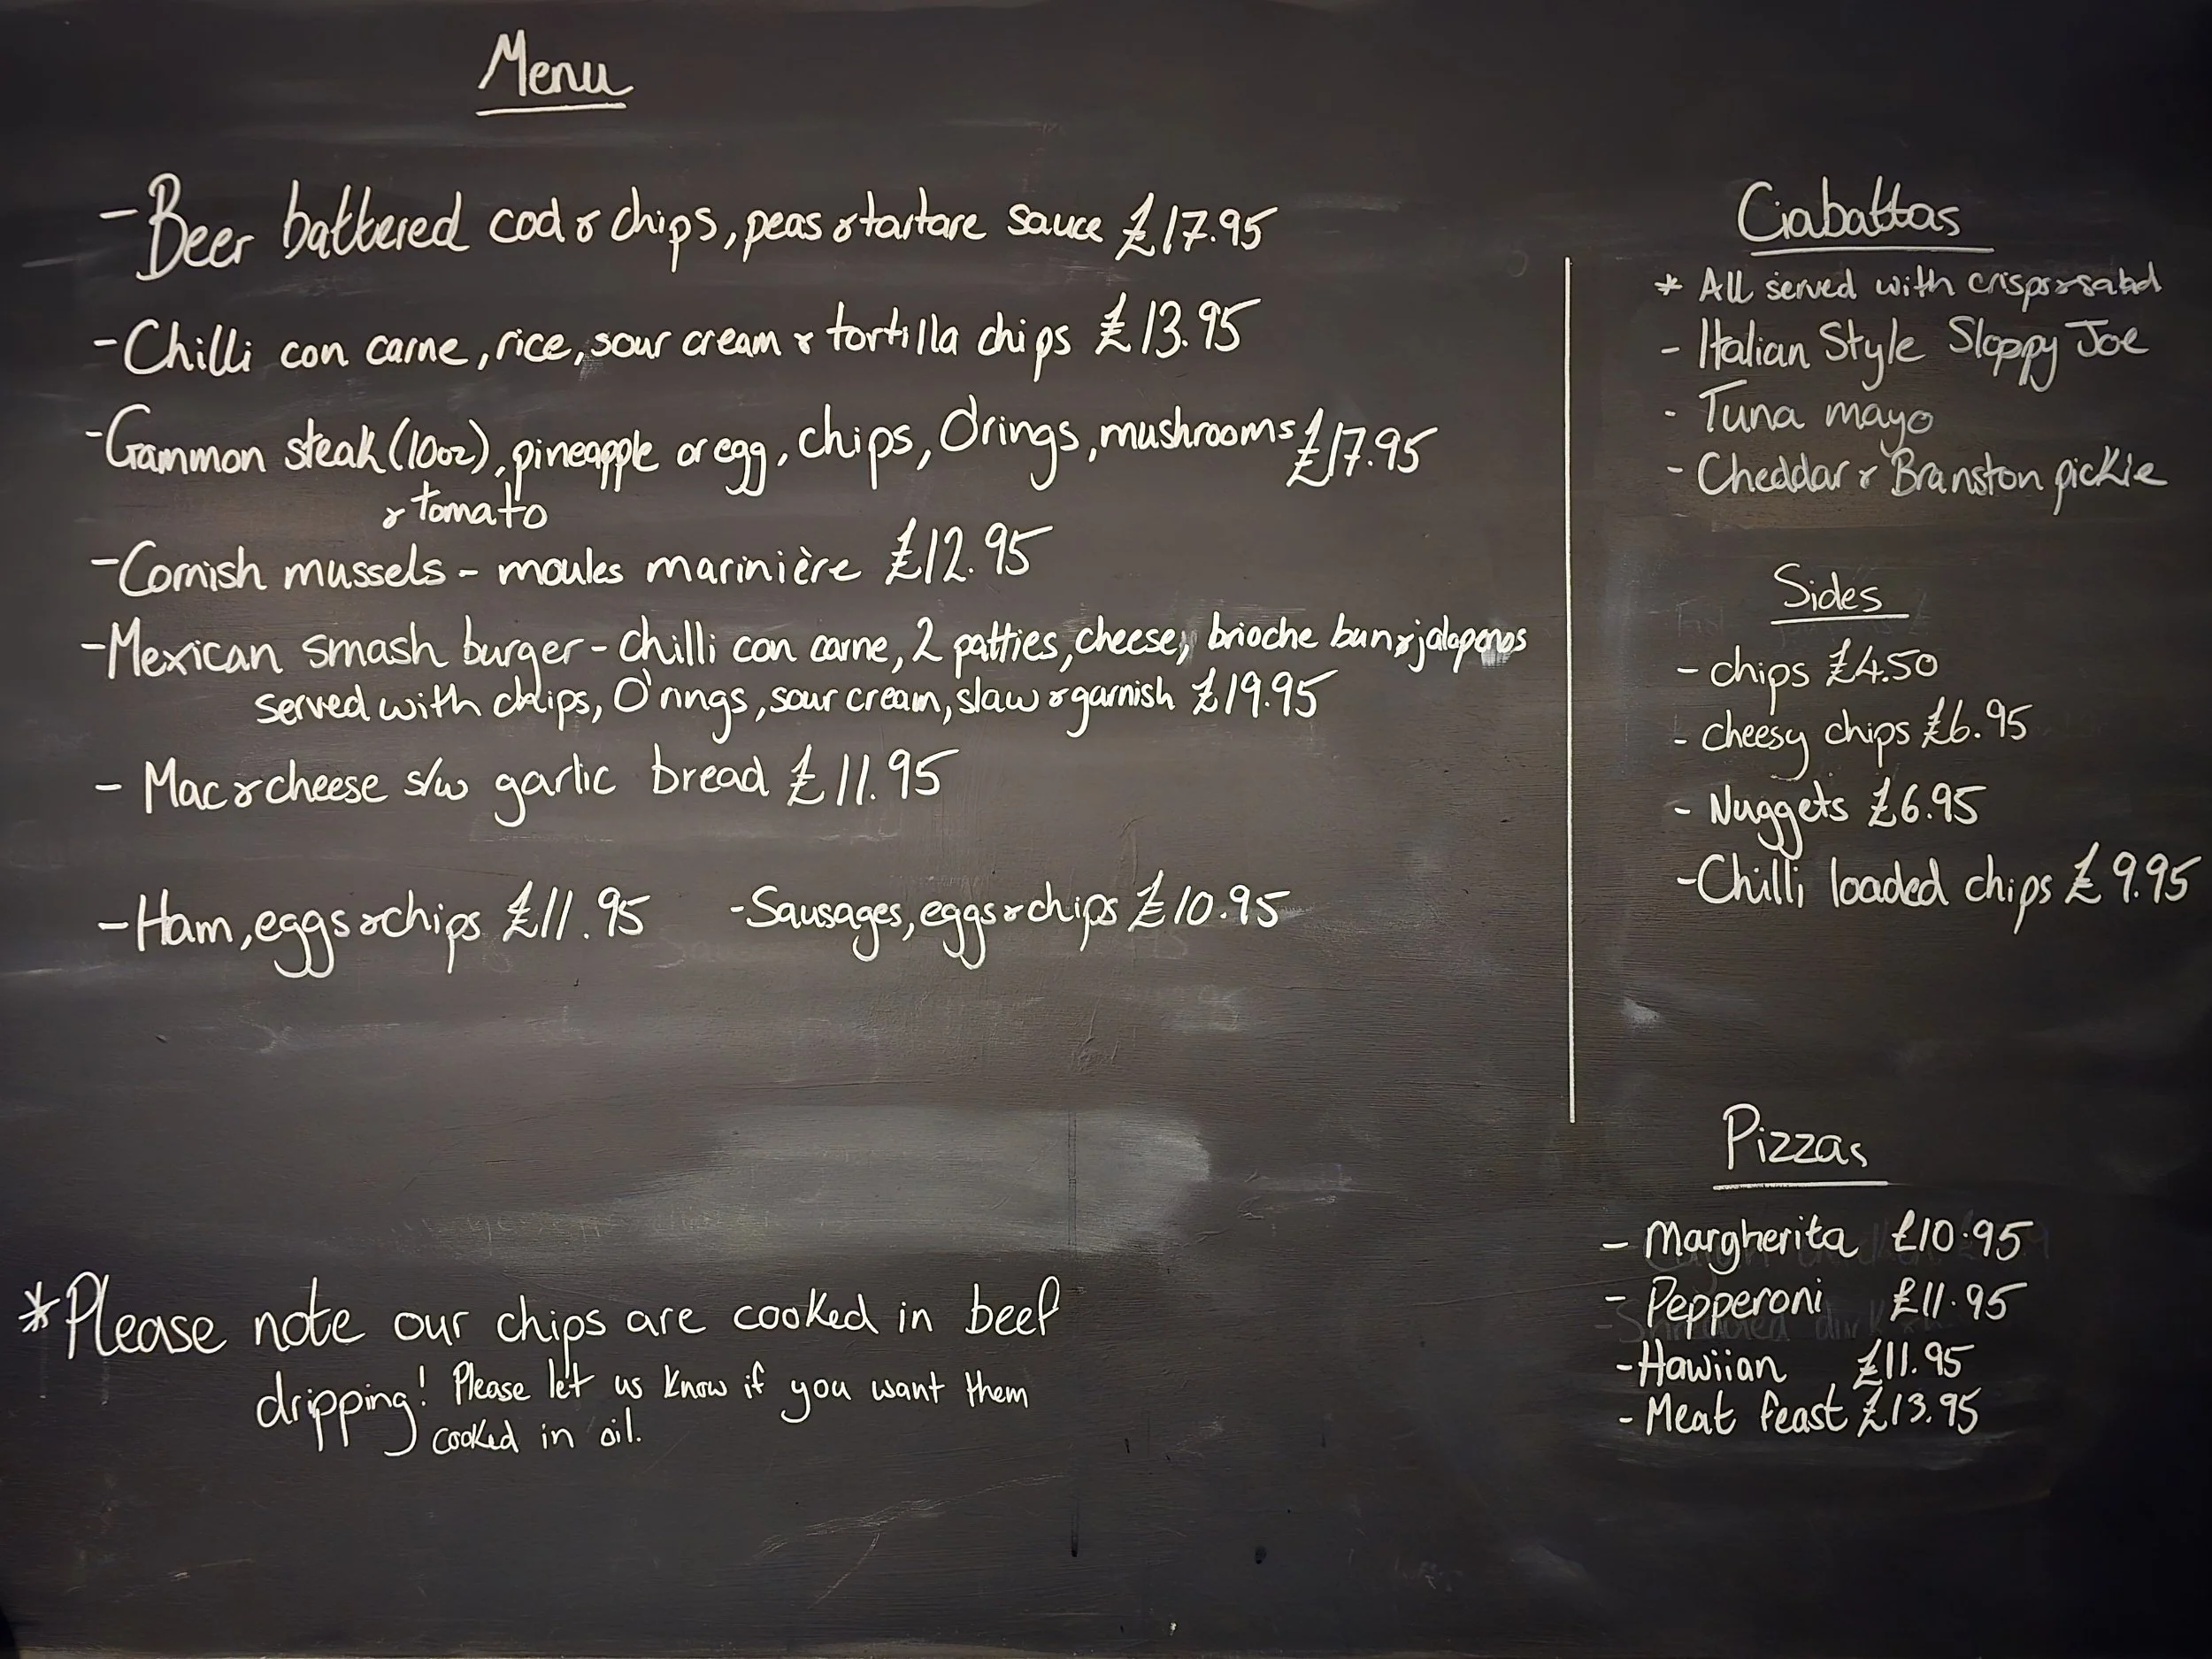 Menu
- Beer battered cod & chips, peas & tartare sauce £17.95
- Chilli con carne, rice, sour cream & tortilla chips £13.95
- Gammon steak (10oz), pineapple or egg, chips, O'rings, mushrooms £17.95
& tomato
- Cornish mussels - moules marinière £12.95
- Mexican smash burger - chilli con carne, 2 patties, cheese, brioche bun & jalapenos
served with chips, O'rings, sour cream, slaw & garnish £19.95
- Mac & cheese s/w garlic bread £11.95
- Ham, eggs & chips £11.95 - Sausages, eggs & chips £10.95
*Please note our chips are cooked in beef
dripping! Please let us know if you want them
cooked in oil.
Ciabattas
* All served with crisps & salad
- Italian Style Sloppy Joe
- Tuna mayo
- Cheddar & Branston pickle
Sides
- chips £4.50
- cheesy chips £6.95
- Nuggets £6.95
- Chilli loaded chips £9.95
Pizzas
- Margherita £10.95
- Pepperoni £11.95
- Hawiian £11.95
- Meat feast £13.95